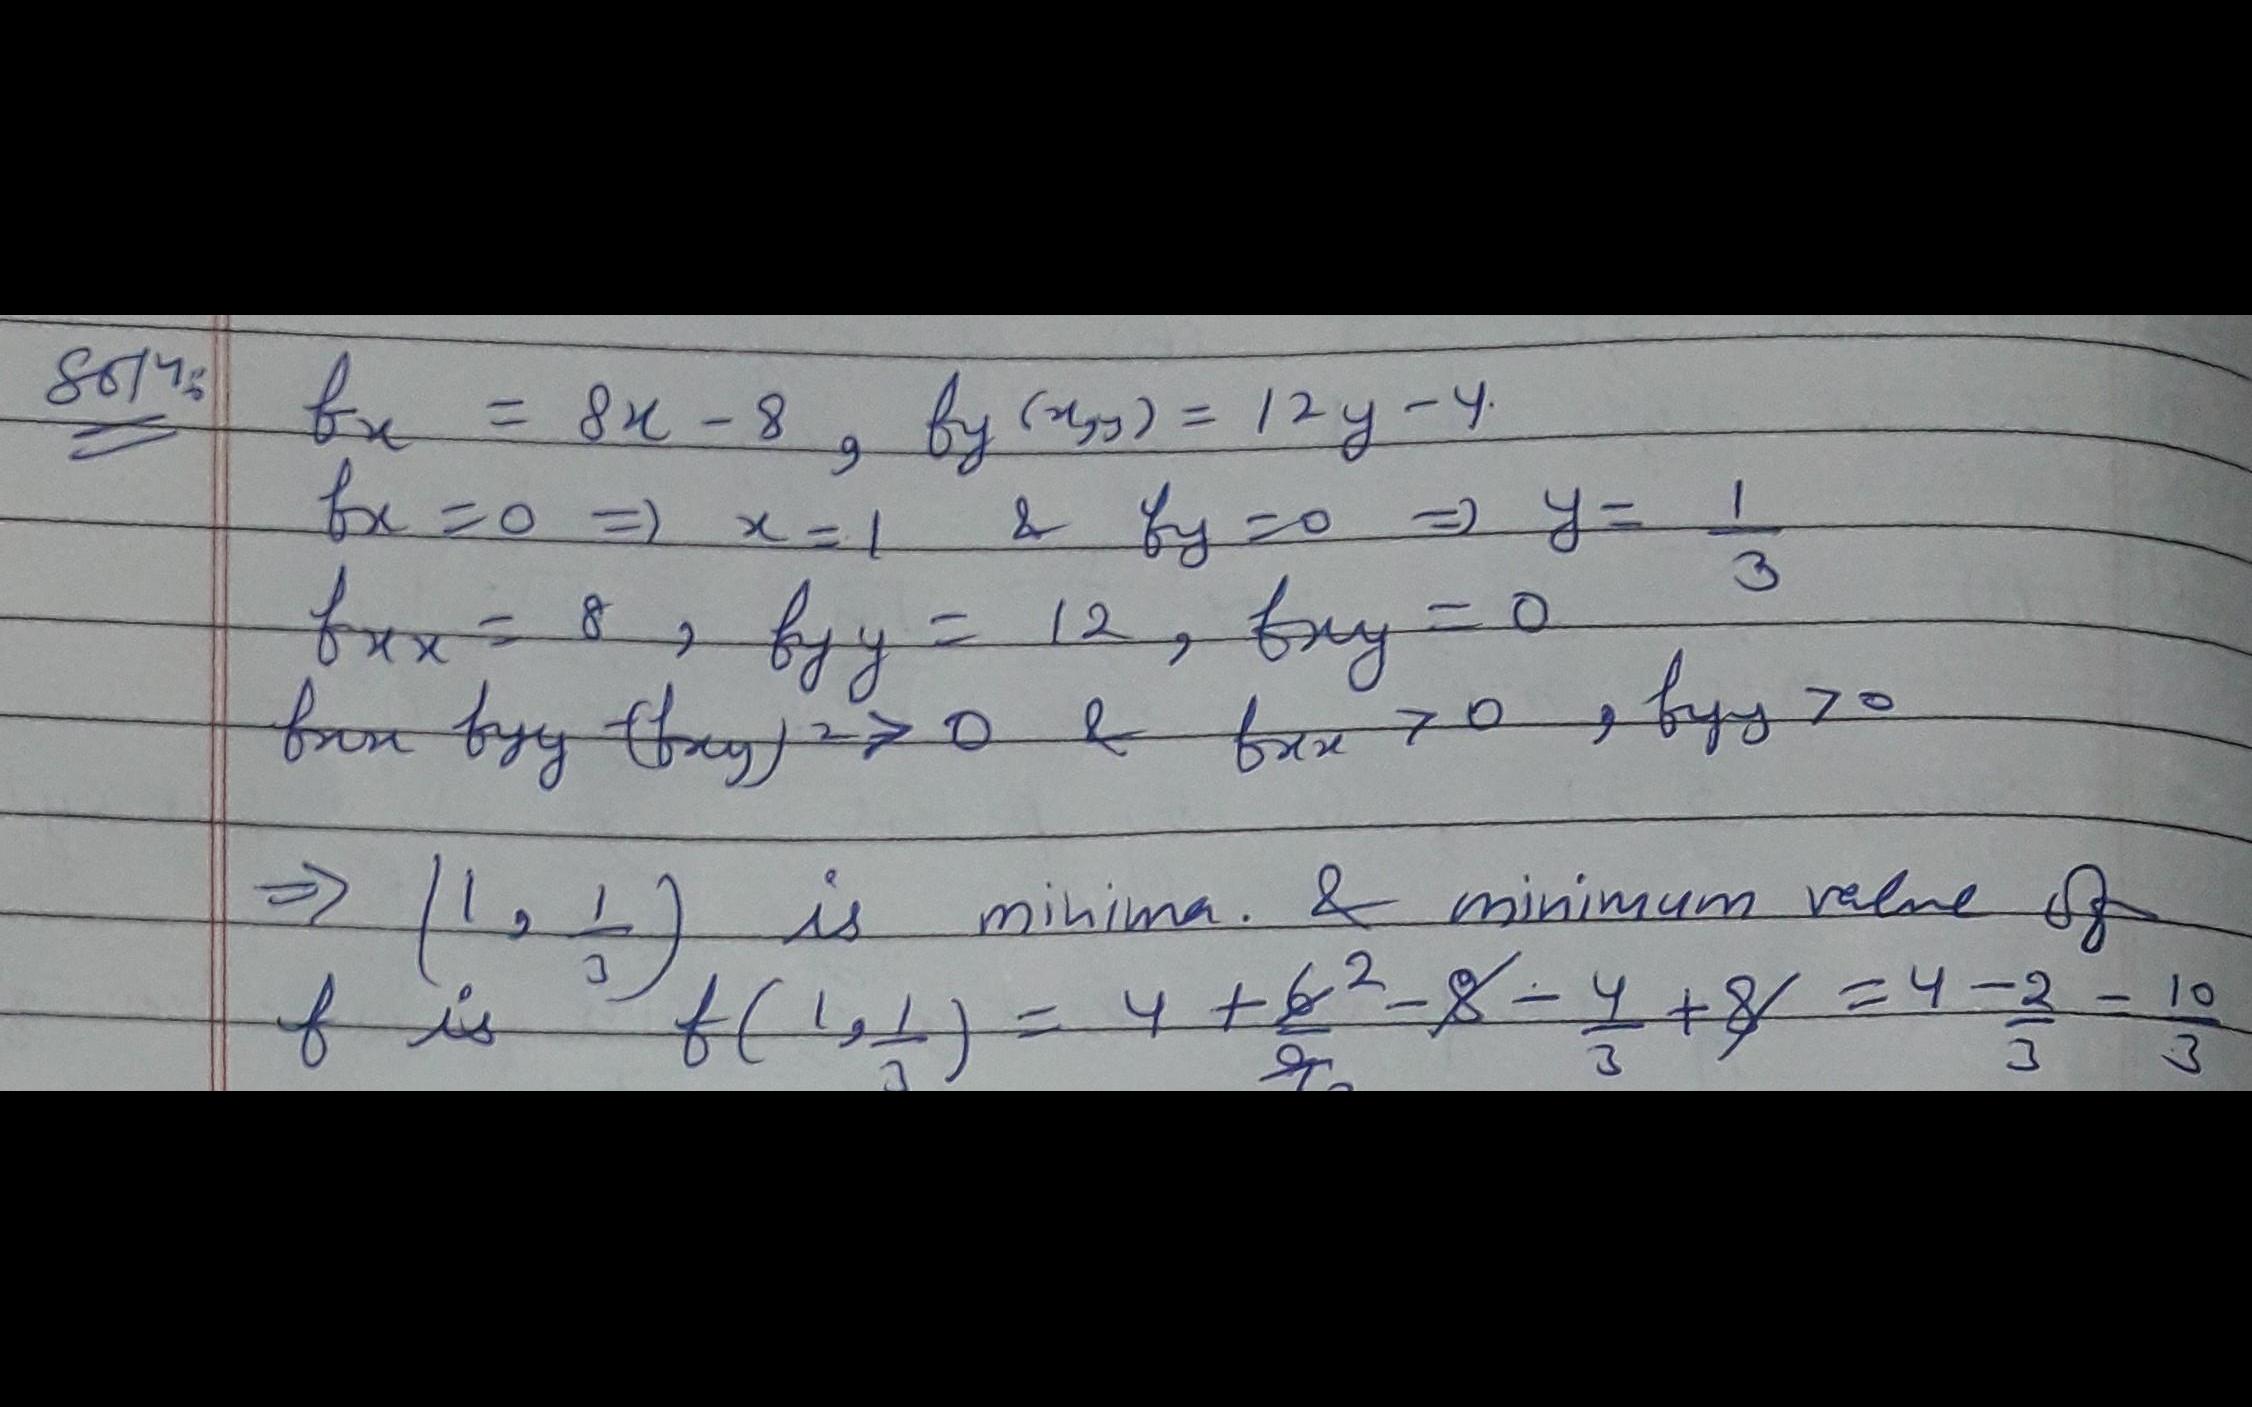 Soln:
fx = 8x - 8, fy (x,y) = 12y - 4.
fx = 0 => x = 1 & fy = 0 => y = 1/3
fxx = 8, fyy = 12, fxy = 0
fxx fyy - (fxy)² > 0 & fxx > 0, fyy > 0
=> (1, 1/3) is minima. & minimum value of
f is f(1, 1/3) = 4 + 6/9 - 8 - 4/3 + 8 = 4 - 2/3 = 10/3